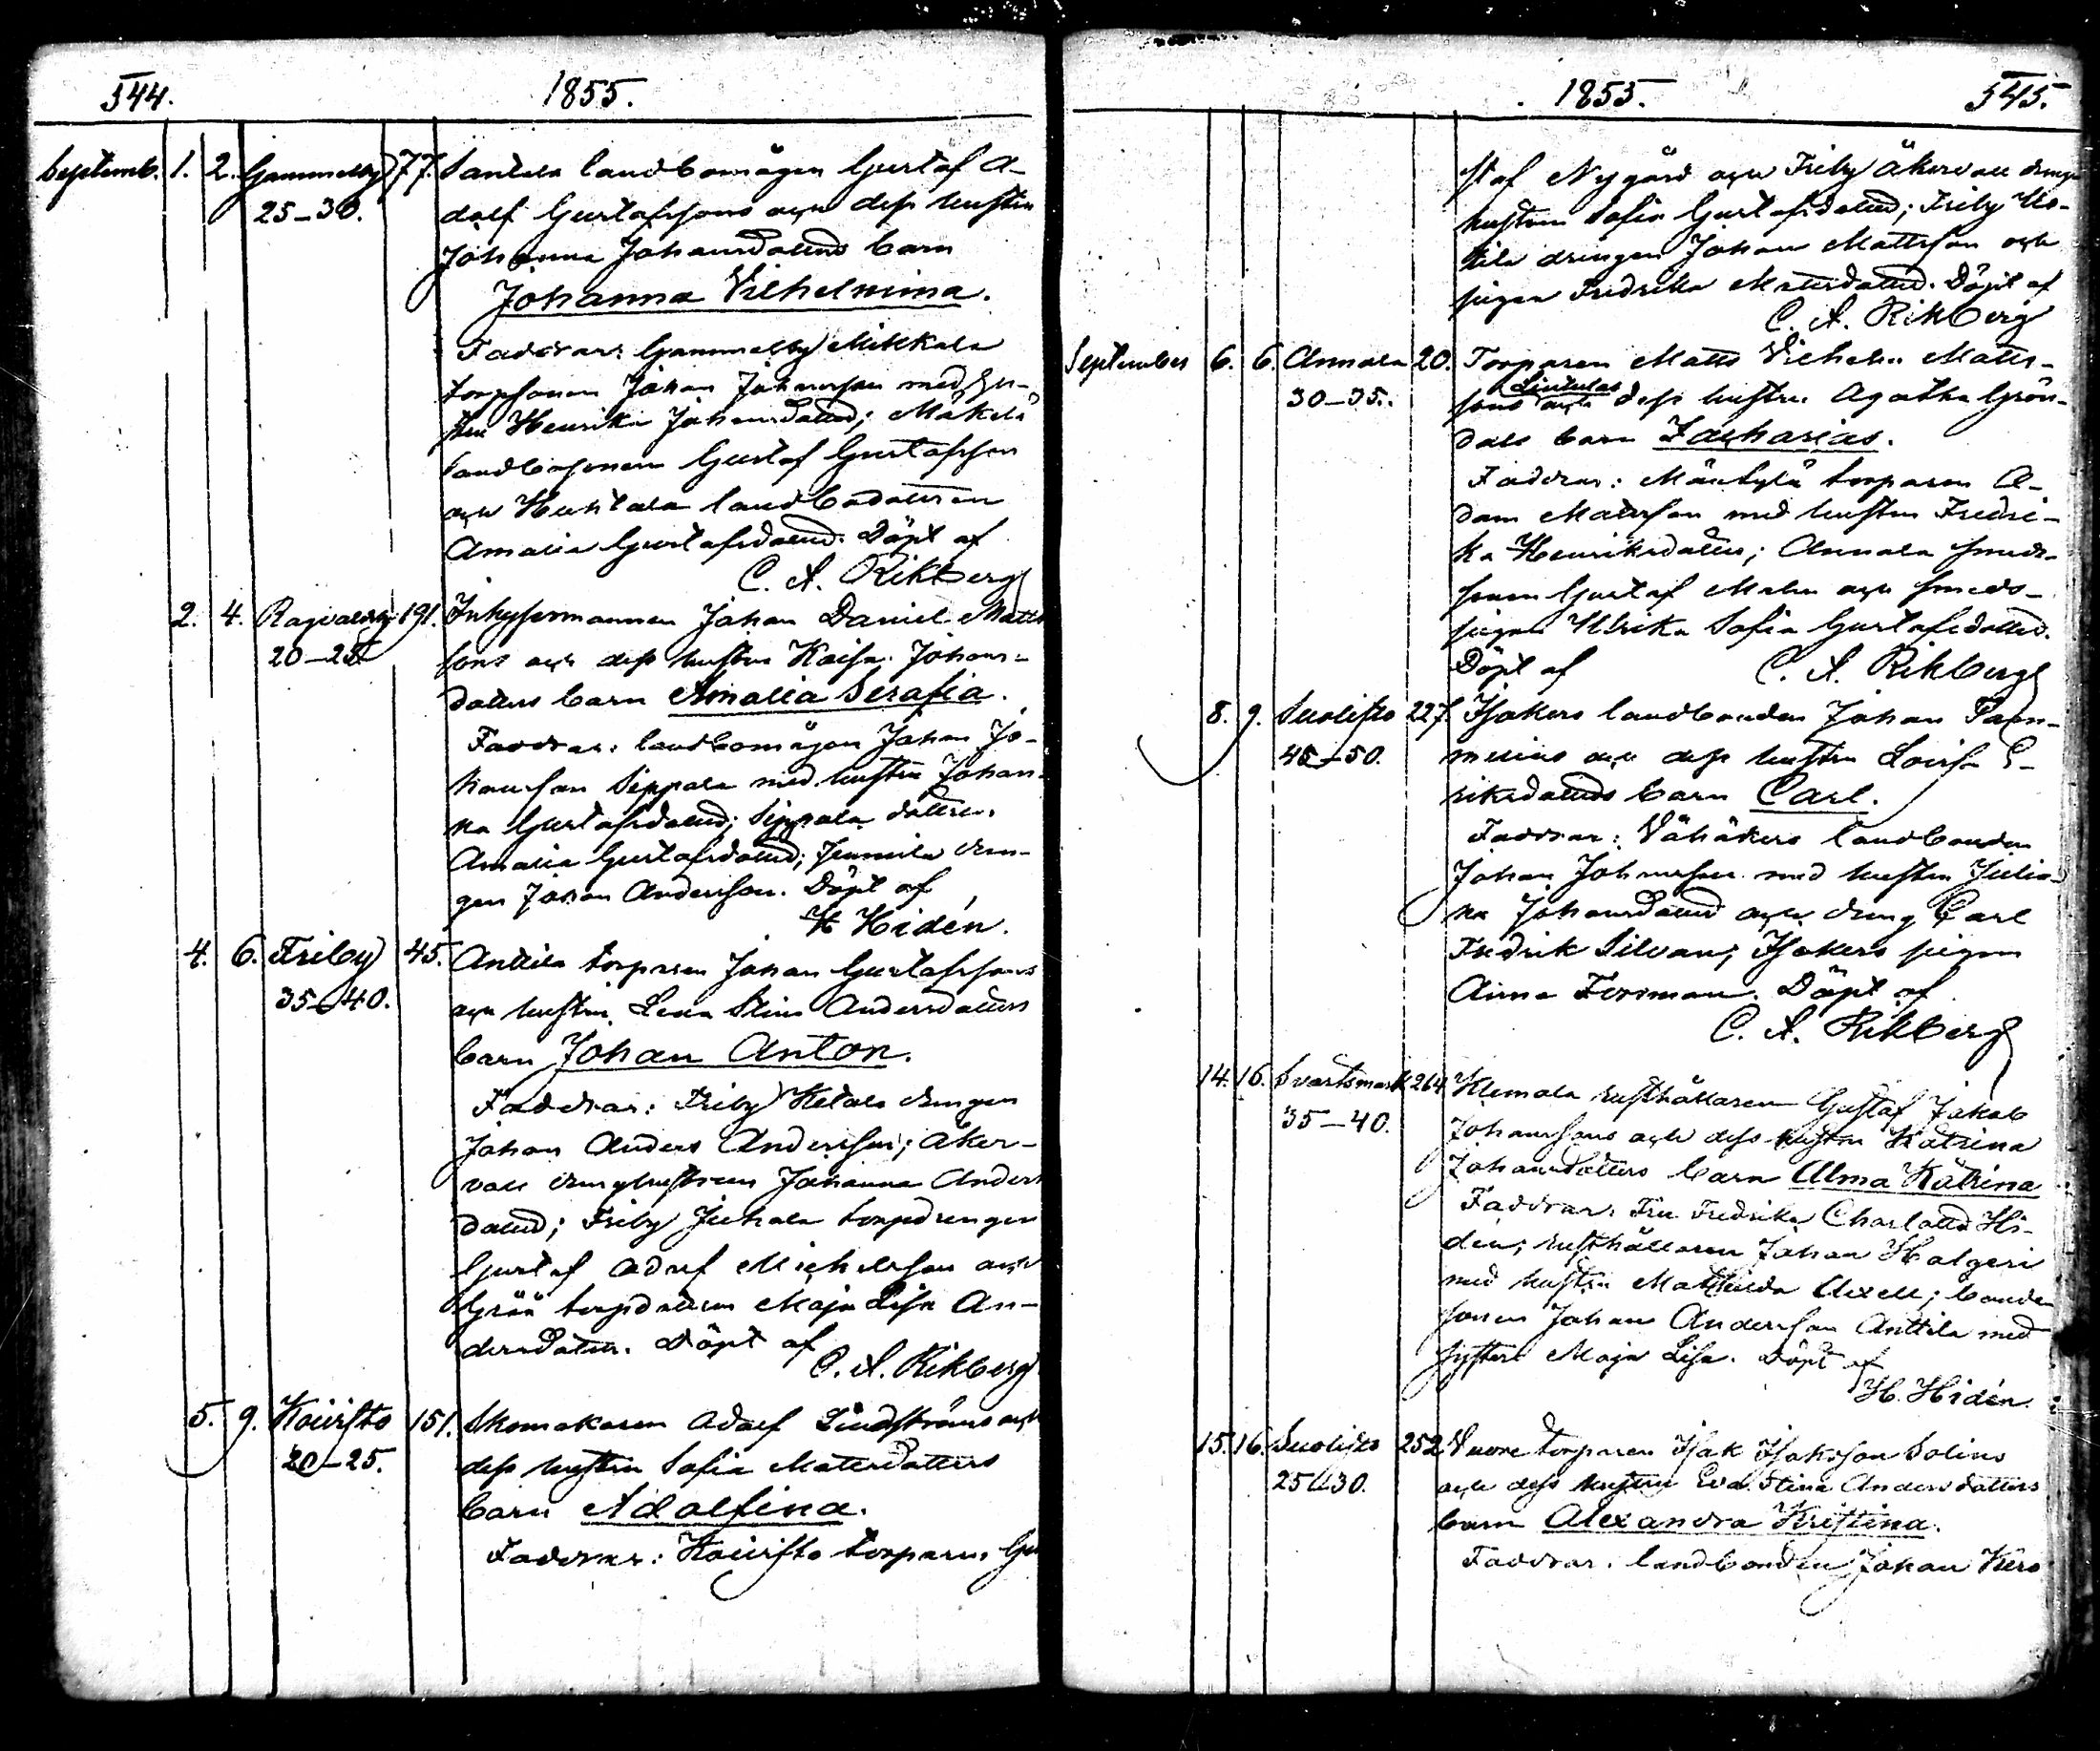 544. 1855.
Septemb. 1. 2. Gammelby 77. Santala landbomågen Gustaf A-
25–30. dolf Gustafssons och dess hustru
Johanna Johansdotters barn
Johanna Vilhelmina.
Faddrar: Gammelby Mikkala
torpsonen Johan Johansson med hu-
stru Henrika Johansdotter; Mäkelä
landbosonen Gustaf Gustafsson
och Huhtala landbodottren
Amalia Gustafsdotter. Döpt af
C. A. Rikberg
2. 4. Ragvalsby 191. Inhysesmannen Johan Daniel Matts
20–25 sons och dess hustru Kaisa Johans-
dotters barn Amalia Serafia.
Faddrar: landbomågen Johan Jo-
hansson Seppala med hustru Johan-
na Gustafsdotter; Seppala dottren
Amalia Gustafsdotter; drän-
gen Johan Andersson. Döpt af
H Hidén.
4. 6. Friby 45. Anttila torparen Johan Gustafssons
35–40. och hustru Lena Stina Andersdotters
barn Johan Anton.
Faddrar: Friby Ketala drängen
Johan Anders Andersson; Åker-
vall dränghustrun Johanna Anders
dotter; Friby Juhala torpdrängen
Gustaf Adolf Michelsson och
Gröö torpdottren Maja Lisa An-
dersdotter. Döpt af
C. A. Rikberg
5. 9. Koivisto 151. Skomakaren Adolf Lindströms och
20–25. dess hustru Sofia Mattsdotters
barn Adolfina.
Faddrar: Koivisto torparen Gu
1855. 545.
staf Nygård och Friby Åkervall dräng
hustrun Sofia Gustafsdotter; Friby Us-
kila drängen Johan Mattsson och
pigan Fredrika Mattsdotter. Döpt af
C. A. Rikberg
September 6. 6. Annala 20. Torparen Matts Vilhelm Matts-
Lintulas
30–35. sons och dess hustru Agatha Grön-
dals barn Zacharias.
Faddrar: Mäntylä torparen A-
dam Mattsson med hustru Fredri-
ka Henriksdotter; Annala smeds-
sonen Gustaf Malm och smeds-
pigan Ulrika Sofia Gustafsdotter.
Döpt af C. A. Rikberg
8. 9. Suolisto 227. Isakers landbonden Johan Tam-
45–50. melins och dess hustru Lovisa E-
riksdotters barn Carl.
Faddrar: Vähäkers landbonden
Johan Johansson med hustru Julia-
na Johansdotter och dräng Carl
Fredrik Silvan; Isakers pigan
Anna Forsman. Döpt af
C. A. Rikberg
14. 16. Svartsmark 264 Klemola rusthållaren Gustaf Jakob
35–40. Johanssons och dess hustru Katrina
Johansdotters barn Alma Katrina
Faddrar: Fru Fredrika Charlotta Hi-
dén; rusthållaren Johan Halgeri
med hustru Mathilda Uxell; bonde
sonen Johan Andersson Anttila med
syster Maja Lisa. Döpt af
H. Hidén.
15. 16. Suolisto 252 Vuore torparen Isak Isaksson Solins
25–30. och dess hustru Eva Stina Andersdotters
barn Alexandra Kristina.
Faddrar: landbonden Johan Kers